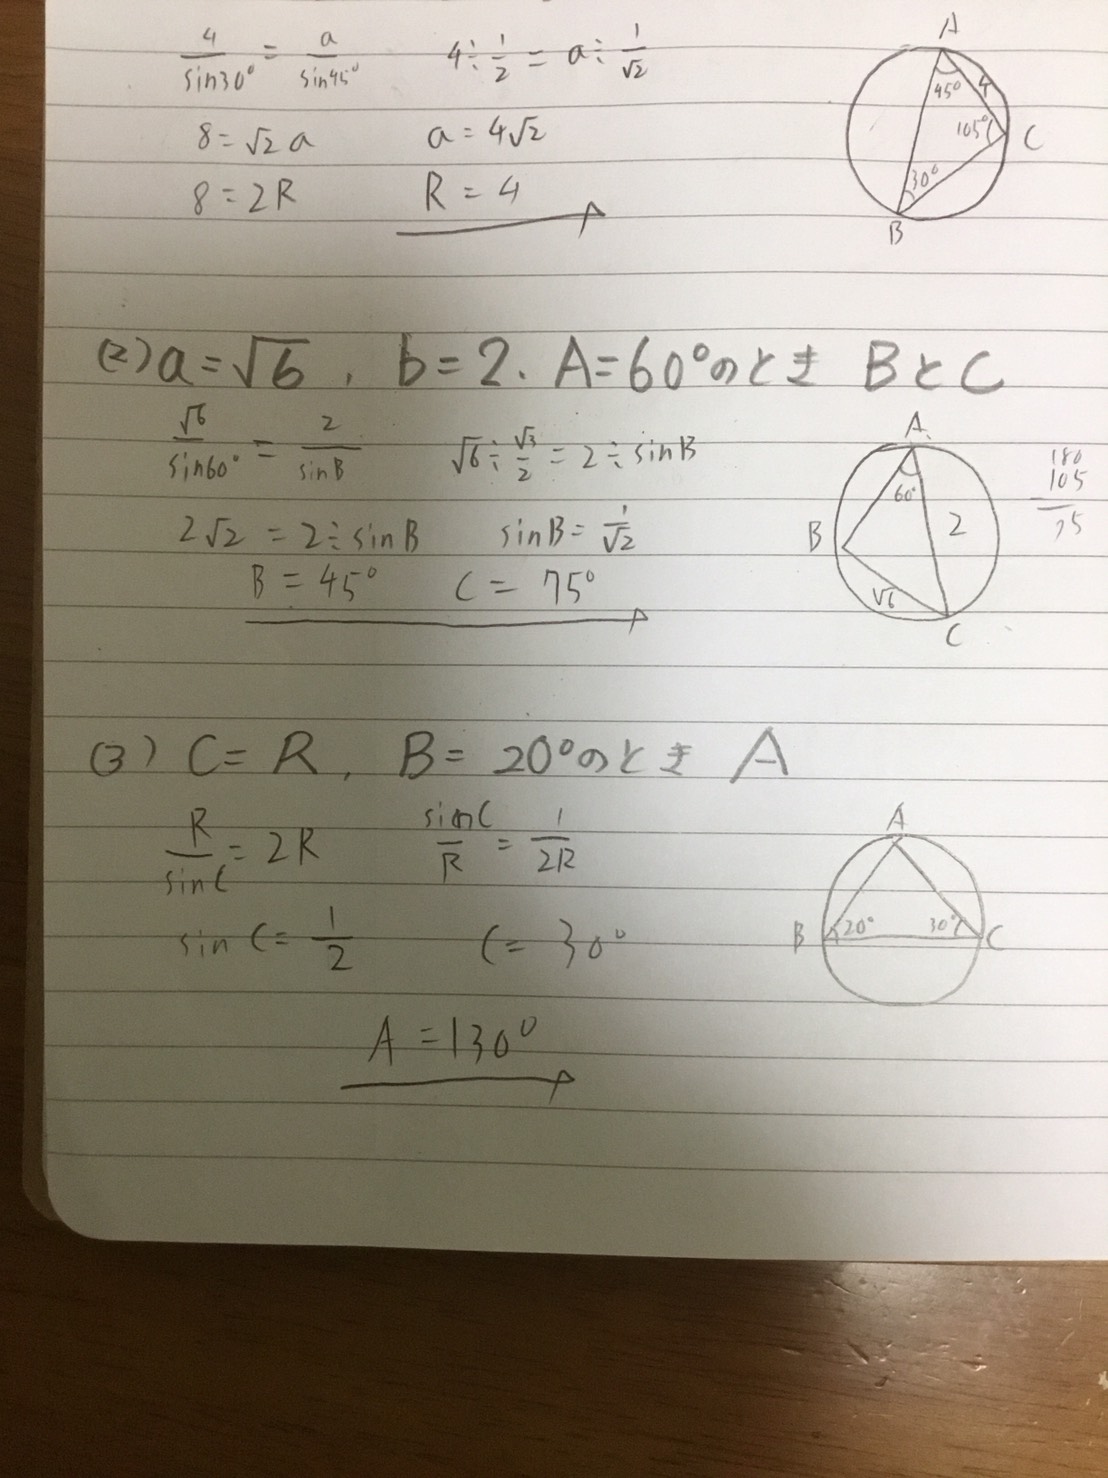 4/sin30° = a/sin45°　4÷1/2 = a÷1/√2
8=√2a　a=4√2
8=2R　R=4
A
45°
4
105°
C
30°
B
(2) a=√6, b=2. A=60°のとき BとC
√6/sin60° = 2/sinB　√6÷√3/2=2÷sinB
2√2=2÷sinB　sinB=1/√2
B=45°　C=75°
A
60°
B
2
√6
C
180
105
75
(3) C=R, B=20°のとき A
R/sinC=2R　sinC/R=1/2R
sinC=1/2　C=30°
A=130°
A
B
20°
30°
C